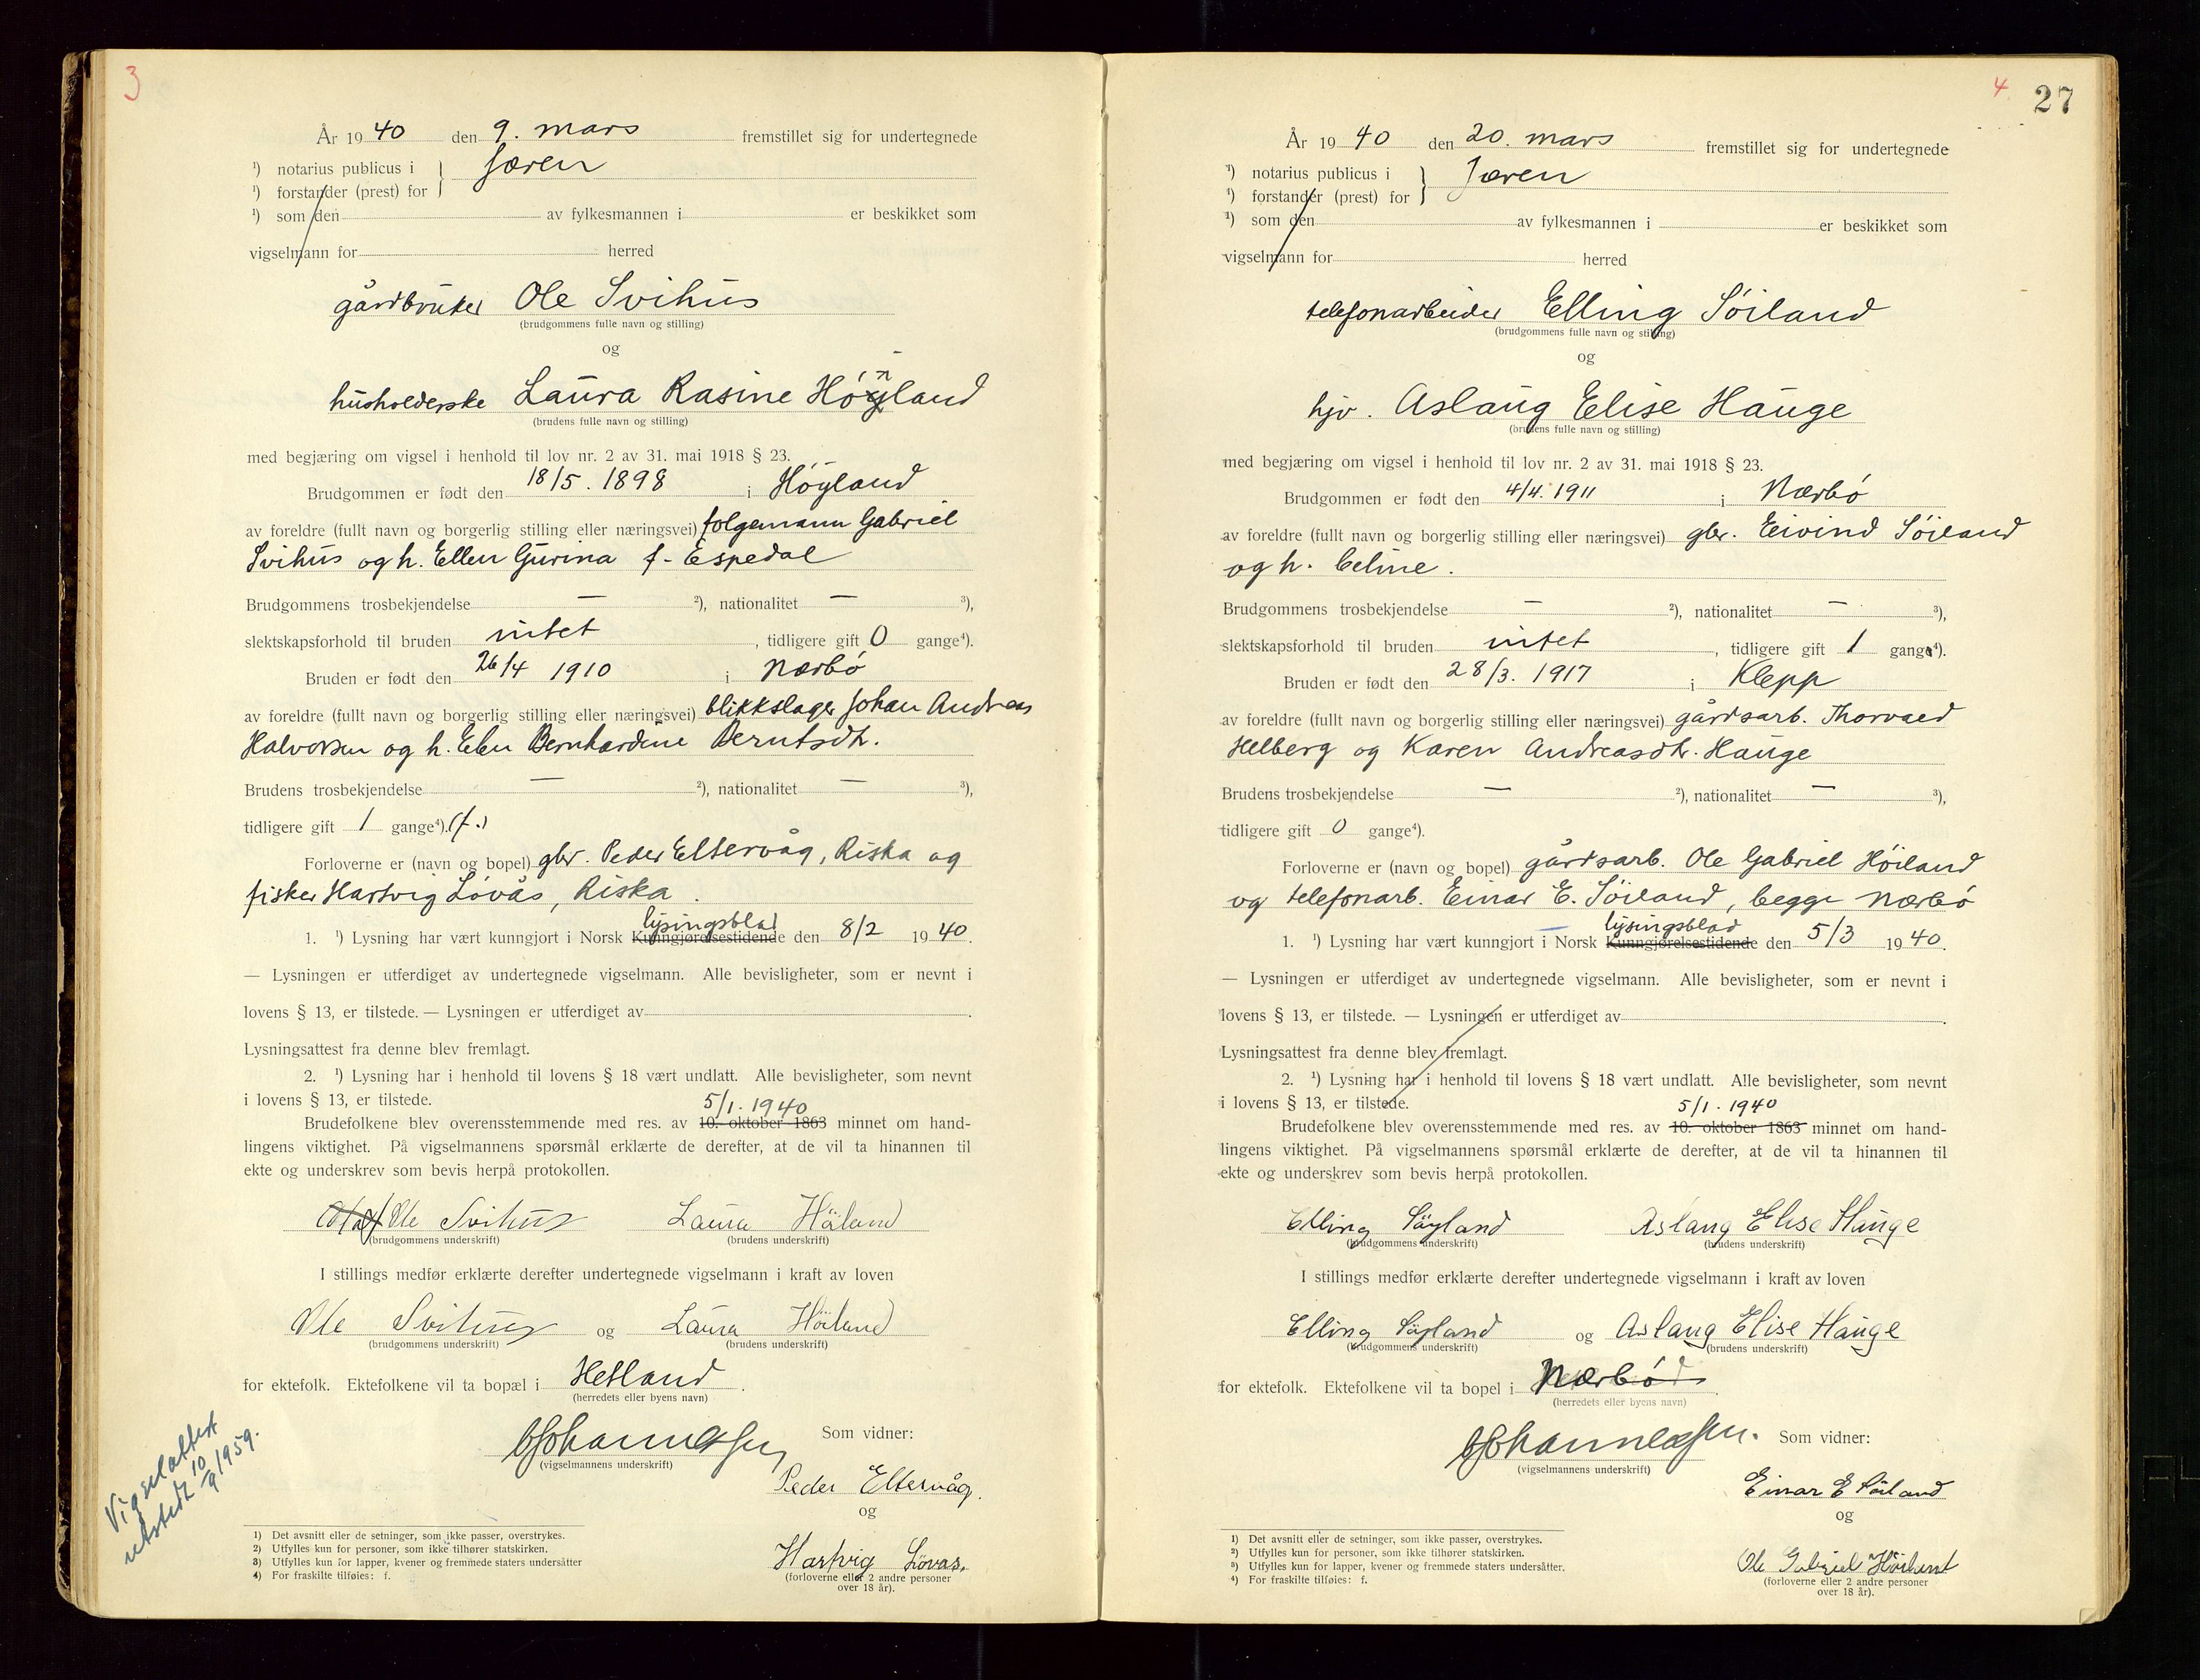 3
År 19 40 den 9. mars fremstillet sig for undertegnede
¹) notarius publicus i } Jæren
¹) forstander (prest) for
¹) som den av fylkesmannen i er beskikket som
vigselmann for herred
gårdbruker Ole Svihus
(brudgommens fulle navn og stilling)
og
husholderske Laura Rasine Høyland
(brudens fulle navn og stilling)
med begjæring om vigsel i henhold til lov nr. 2 av 31. mai 1918 § 23.
Brudgommen er født den 18/5. 1898 i Høyland
av foreldre (fullt navn og borgerlig stilling eller næringsvei) følgemann Gabriel
Svihus og h. Ellen Gurina f. Espedal
Brudgommens trosbekjendelse — ²), nationalitet — ³),
slektskapsforhold til bruden intet, tidligere gift 0 gange⁴).
Bruden er født den 26/4 1910 i Nærbø
av foreldre (fullt navn og borgerlig stilling eller næringsvei) blikkslager Johan Andreas
Halvorsen og h. Elen Bernhardine Berntsdtr.
Brudens trosbekjendelse — ²), nationalitet — ³),
tidligere gift 1 gange⁴).(f.)
Forloverne er (navn og bopel) gbr. Peder Eltervåg, Riska og
fisker Hartvig Løvås, Riska.
lysingsblad
1. ¹) Lysning har vært kunngjort i Norsk Kunngjørelsestidende den 8/2 19 40.
— Lysningen er utferdiget av undertegnede vigselmann. Alle bevisligheter, som er nevnt i
lovens § 13, er tilstede. — Lysningen er utferdiget av .
Lysningsattest fra denne blev fremlagt.
2. ¹) Lysning har i henhold til lovens § 18 vært undlatt. Alle bevisligheter, som nevnt
i lovens § 13, er tilstede.
5/1. 1940
Brudefolkene blev overensstemmende med res. av 10. oktober 1863 minnet om hand-
lingens viktighet. På vigselmannens spørsmål erklærte de derefter, at de vil ta hinannen til
ekte og underskrev som bevis herpå protokollen.
Ole Svihus Laura Høiland
(brudgommens underskrift) (brudens underskrift)
I stillings medfør erklærte derefter undertegnede vigselmann i kraft av loven
Ole Svihus og Laura Høiland
(brudgommens underskrift) (brudens underskrift)
for ektefolk. Ektefolkene vil ta bopæl i Hetland.
(herredets eller byens navn)
Som vidner:
(vigselmannens underskrift)
Peder Eltervåg.
og
Hartvig Løvås.
(forloverne eller 2 andre personer
over 18 år).
Vigselattest
utstedt 10/9 1959.
1) Det avsnitt eller de setninger, som ikke passer, overstrykes.
2) Utfylles kun for personer, som ikke tilhører statskirken.
3) Utfylles kun for lapper, kvener og fremmede staters undersåtter
4) For fraskilte tilføies: f.
4 27
År 19 40 den 20. mars fremstillet sig for undertegnede
¹) notarius publicus i } Jæren
¹) forstander (prest) for
¹) som den av fylkesmannen i er beskikket som
vigselmann for herred
telefonarbeider Elling Søiland
(brudgommens fulle navn og stilling)
og
hjv. Aslaug Elise Hauge
(brudens fulle navn og stilling)
med begjæring om vigsel i henhold til lov nr. 2 av 31. mai 1918 § 23.
Brudgommen er født den 4/4. 1911 i Nærbø
av foreldre (fullt navn og borgerlig stilling eller næringsvei) gbr. Eivind Søiland
og h. Celine.
Brudgommens trosbekjendelse — ²), nationalitet — ³),
slektskapsforhold til bruden intet, tidligere gift 1 gange⁴).
Bruden er født den 28/3. 1917 i Klepp
av foreldre (fullt navn og borgerlig stilling eller næringsvei) gårdsarb. Thorvald
Helberg og Karen Andreasdtr. Hauge
Brudens trosbekjendelse — ²), nationalitet — ³),
tidligere gift 0 gange⁴).
Forloverne er (navn og bopel) gårdsarb. Ole Gabriel Høiland
og telefonarb. Einar E. Søiland, begge Nærbø
lysingsblad
1. ¹) Lysning har vært kunngjort i Norsk Kunngjørelsestidende den 5/3 19 40.
— Lysningen er utferdiget av undertegnede vigselmann. Alle bevisligheter, som er nevnt i
lovens § 13, er tilstede. — Lysningen er utferdiget av .
Lysningsattest fra denne blev fremlagt.
2. ¹) Lysning har i henhold til lovens § 18 vært undlatt. Alle bevisligheter, som nevnt
i lovens § 13, er tilstede.
5/1. 1940
Brudefolkene blev overensstemmende med res. av 10. oktober 1863 minnet om hand-
lingens viktighet. På vigselmannens spørsmål erklærte de derefter, at de vil ta hinannen til
ekte og underskrev som bevis herpå protokollen.
Elling Søyland Aslaug Elise Hauge
(brudgommens underskrift) (brudens underskrift)
I stillings medfør erklærte derefter undertegnede vigselmann i kraft av loven
Elling Søyland og Aslaug Elise Hauge
(brudgommens underskrift) (brudens underskrift)
for ektefolk. Ektefolkene vil ta bopel i Nærbø.
(herredets eller byens navn)
Som vidner:
(vigselmannens underskrift)
Einar E Søiland
og
Ole Gabriel Høiland
(forloverne eller 2 andre personer
over 18 år).
1) Det avsnitt eller de setninger, som ikke passer, overstrykes.
2) Utfylles kun for personer, som ikke tilhører statskirken.
3) Utfylles kun for lapper, kvener og fremmede staters undersåtter.
4) For fraskilte tilføies: f.